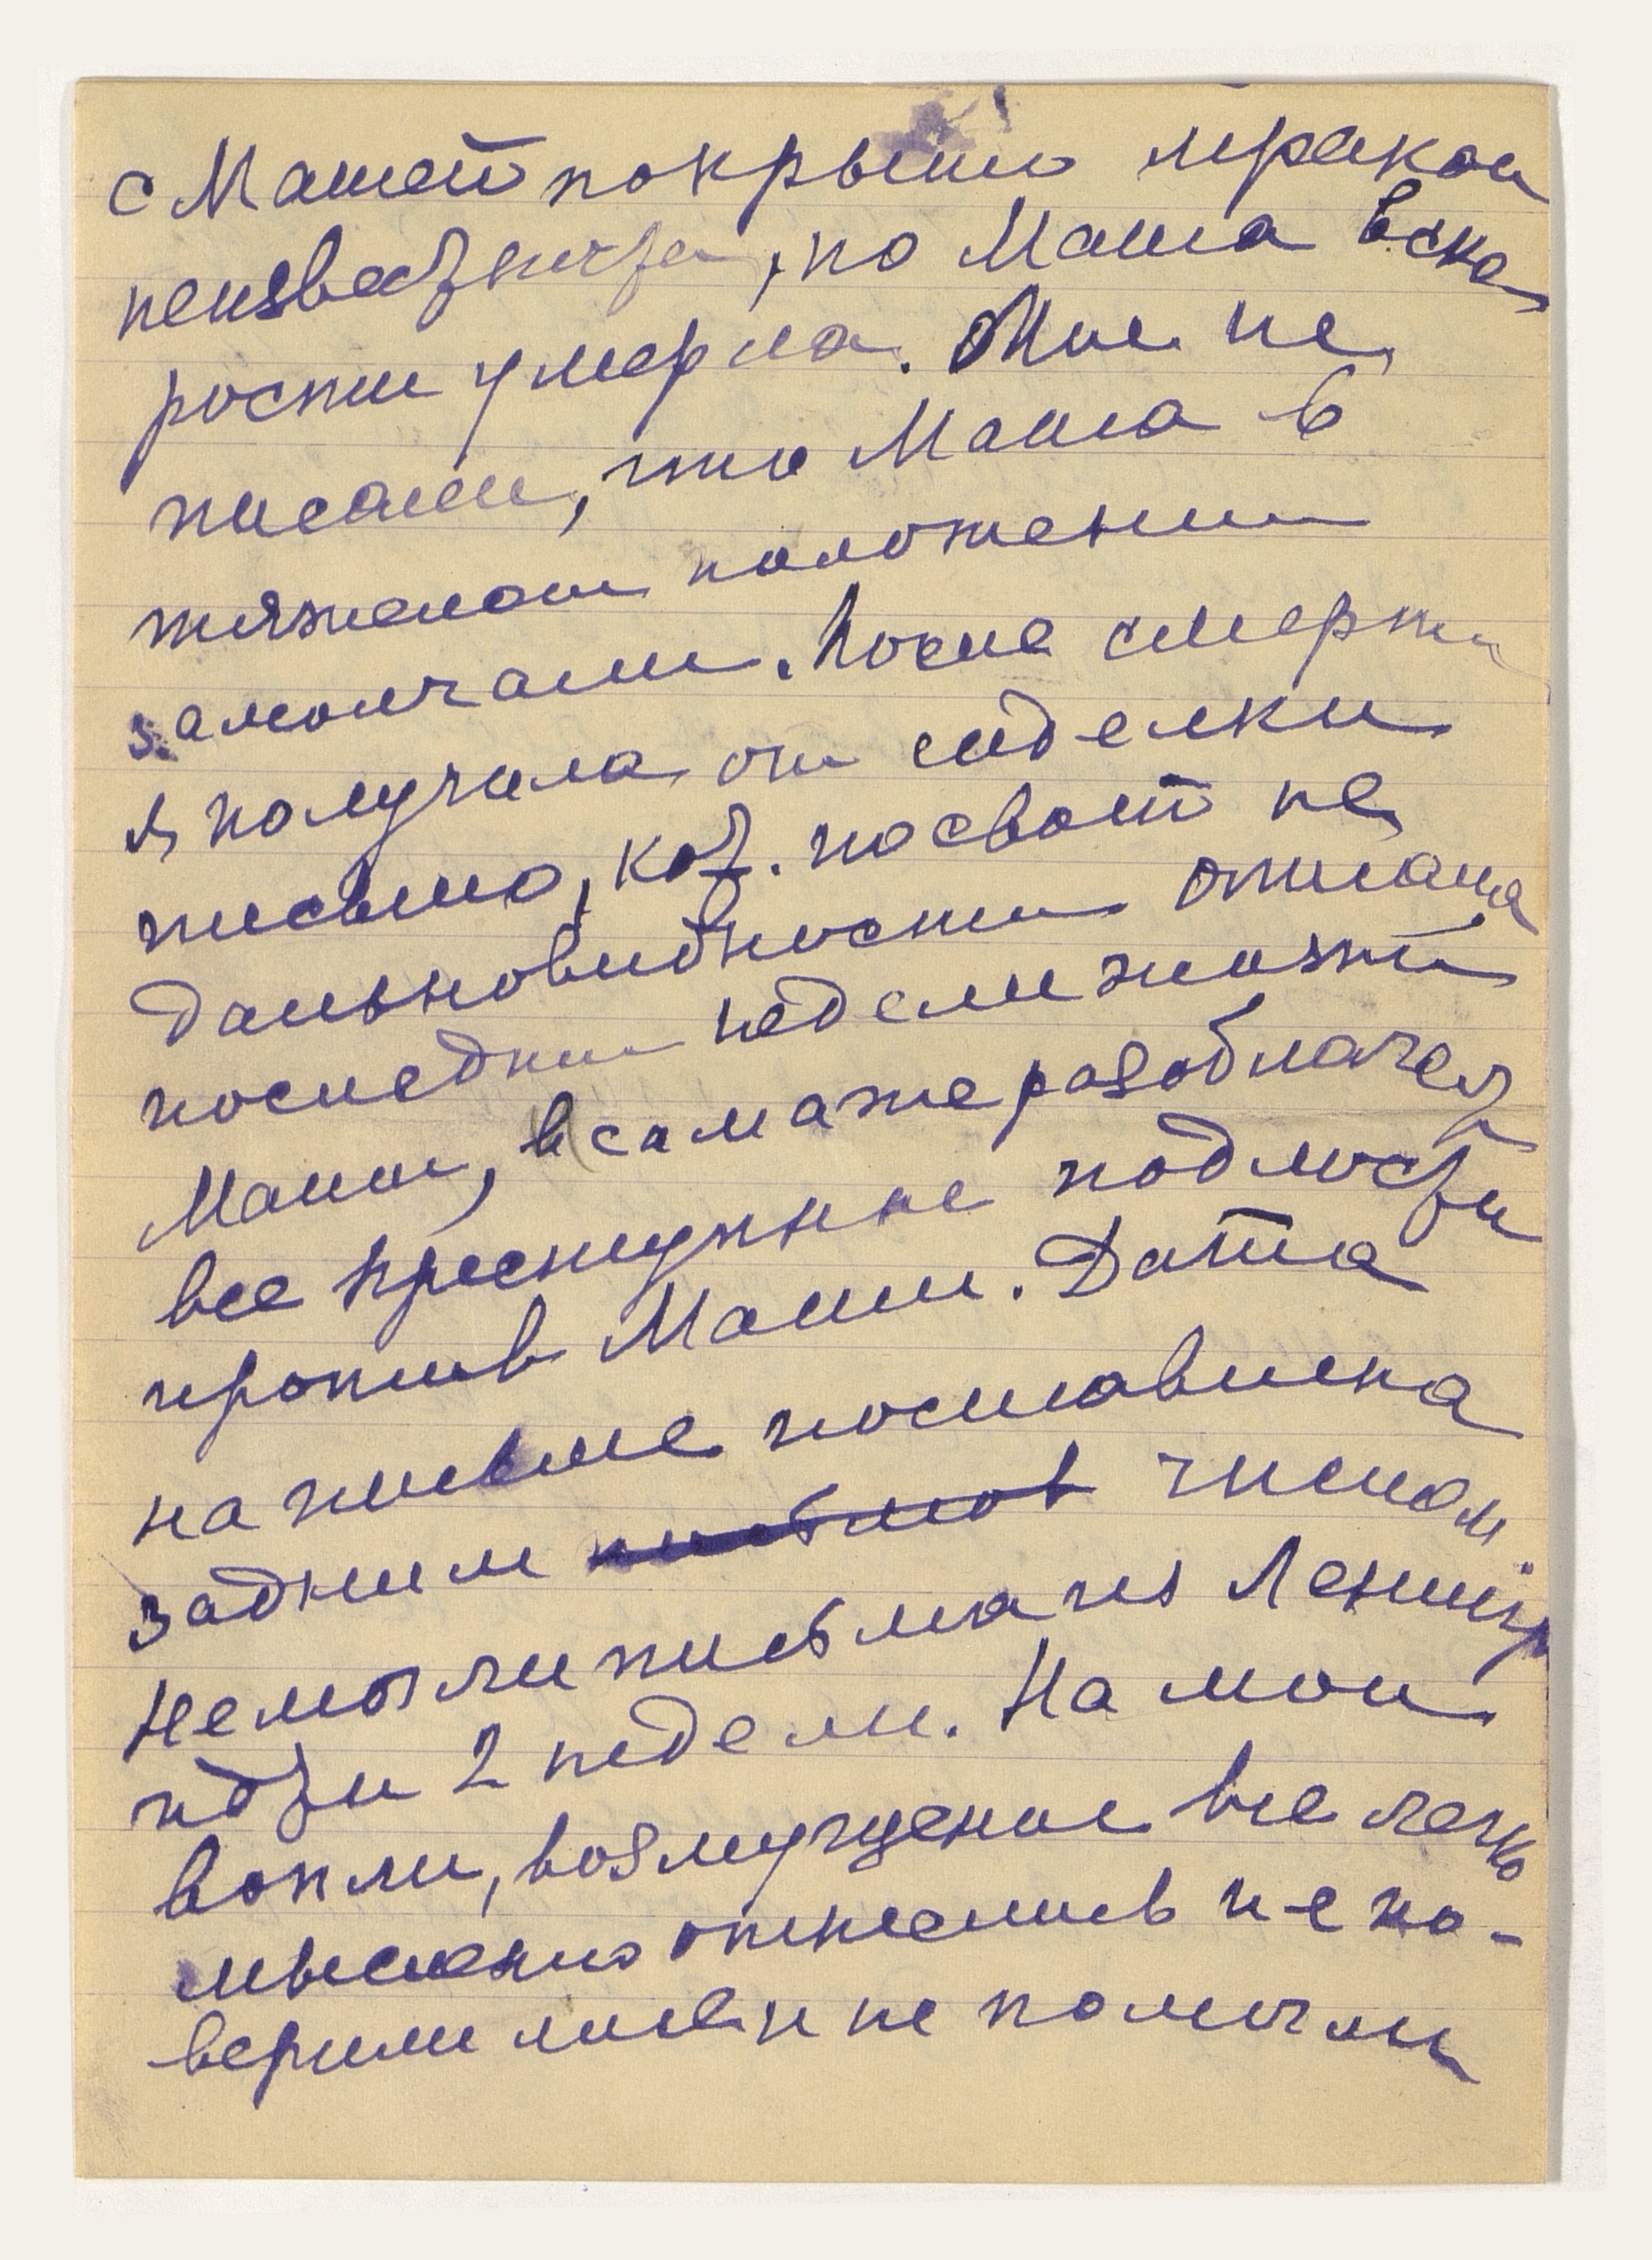 с Машей покрыто мраком
неизвестности, но Маша вско
рости умерла. Мне не
писали, что Маша в
тяжелом положении
замолчали. После смерти
я получила от сиделки
письмо, кот. по своей не
дальновидности описала
последнии недели жизни
Маши, в сама же разоблачел
все преступные подлости
против Маши. Дата
на письме поставлена
задним письмов числом
Не могли письма из Ленингр
идти 2 недели. На мои
вопли, возмущение все легко
мысленно отнеслись и не по-
верили мне и не помогли